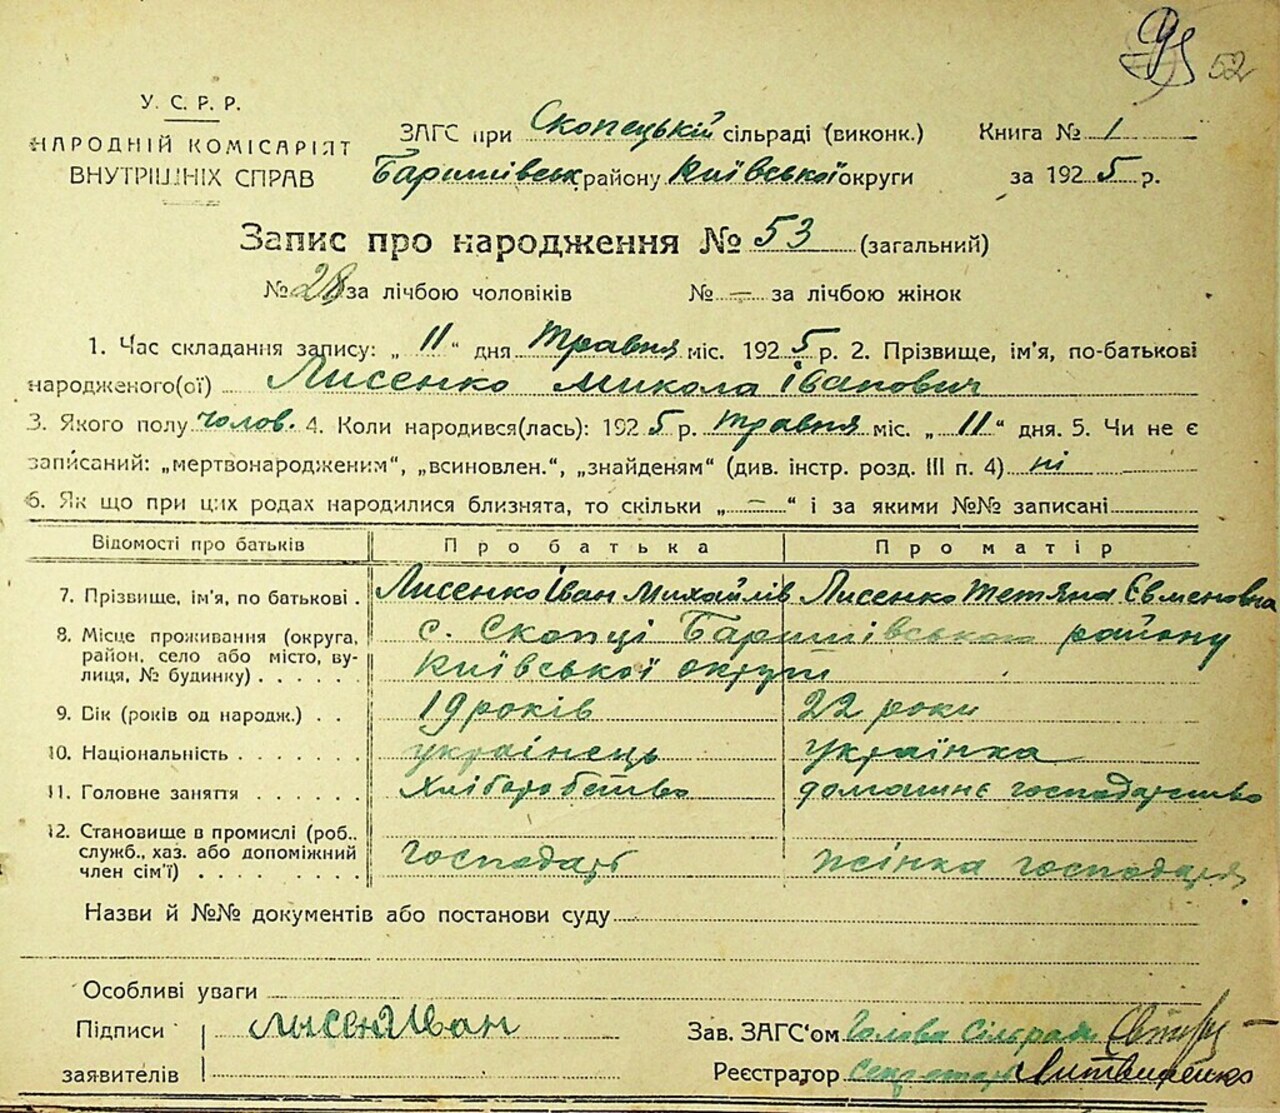 52
У. С. Р. Р.
НАРОДНІЙ КОМІСАРІЯТ
ВНУТРІШНІХ СПРАВ
ЗАГС при Скопецькій сільраді (виконк.) Книга № 1
Баришівськ району Київської округи за 1925 р.
Запис про народження № 53 (загальний)
№ 28 за лічбою чоловіків № — за лічбою жінок
1. Час складання запису: „ 11 “ дня травня міс. 1925 р. 2. Прізвище, ім'я, по-батькові
народженого(ої) Лисенко Микола Іванович
3. Якого полу чолов. 4. Коли народився(лась): 1925 р. травня міс. „ 11 “ дня. 5. Чи не є
записаний: „мертвонародженим“, „всиновлен.“, „знайденям“ (див. інстр. розд. III п. 4) ні
6. Як що при цих родах народилися близнята, то скільки „ — “ і за якими №№ записані
Відомості про батьків Про батька Про матір
7. Прізвище, ім'я, по батькові . Лисенко Іван Михайлів Лисенко Тетяна Євменовна
8. Місце проживання (округа, с. Скопці Баришівського району
район, село або місто, ву-
лиця, № будинку) . . . . . . Київської округи
9. Вік (років од народж.) . . 19 років 22 роки
10. Національність . . . . . . . українець українка
11. Головне заняття . . . . . . Хліборобство домашнє господарство
12. Становище в промислі (роб.,
служб., хаз. або допоміжний господарь жінка господаря
член сім'ї) . . . . . . . . .
Назви й №№ документів або постанови суду
Особливі уваги
Підписи Лисен Иван Зав. ЗАГС'ом Голова Сільради
заявителів Реєстратор Секретарь Литвиненко